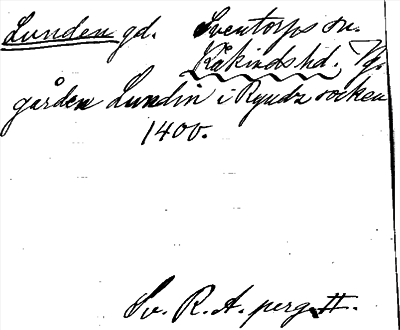 Lunden gd. Sventorps sn.
Kåkinds hd. Vg.
gården Lundin i Ryudz socken
1400.
Sv. R. A. perg. II.